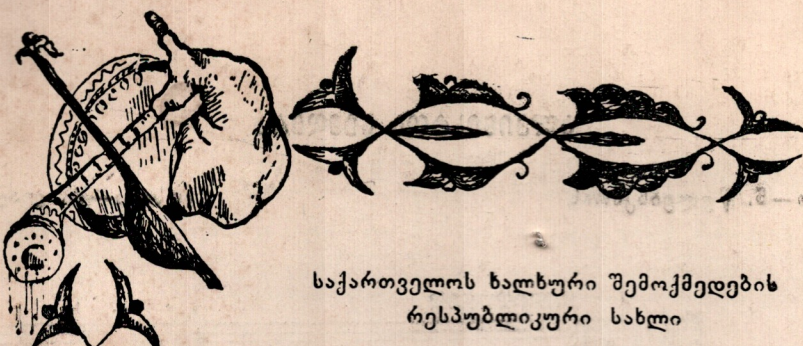 საქართველოს ხალხური შემოქმედების
რესპუბლიკური სახლი